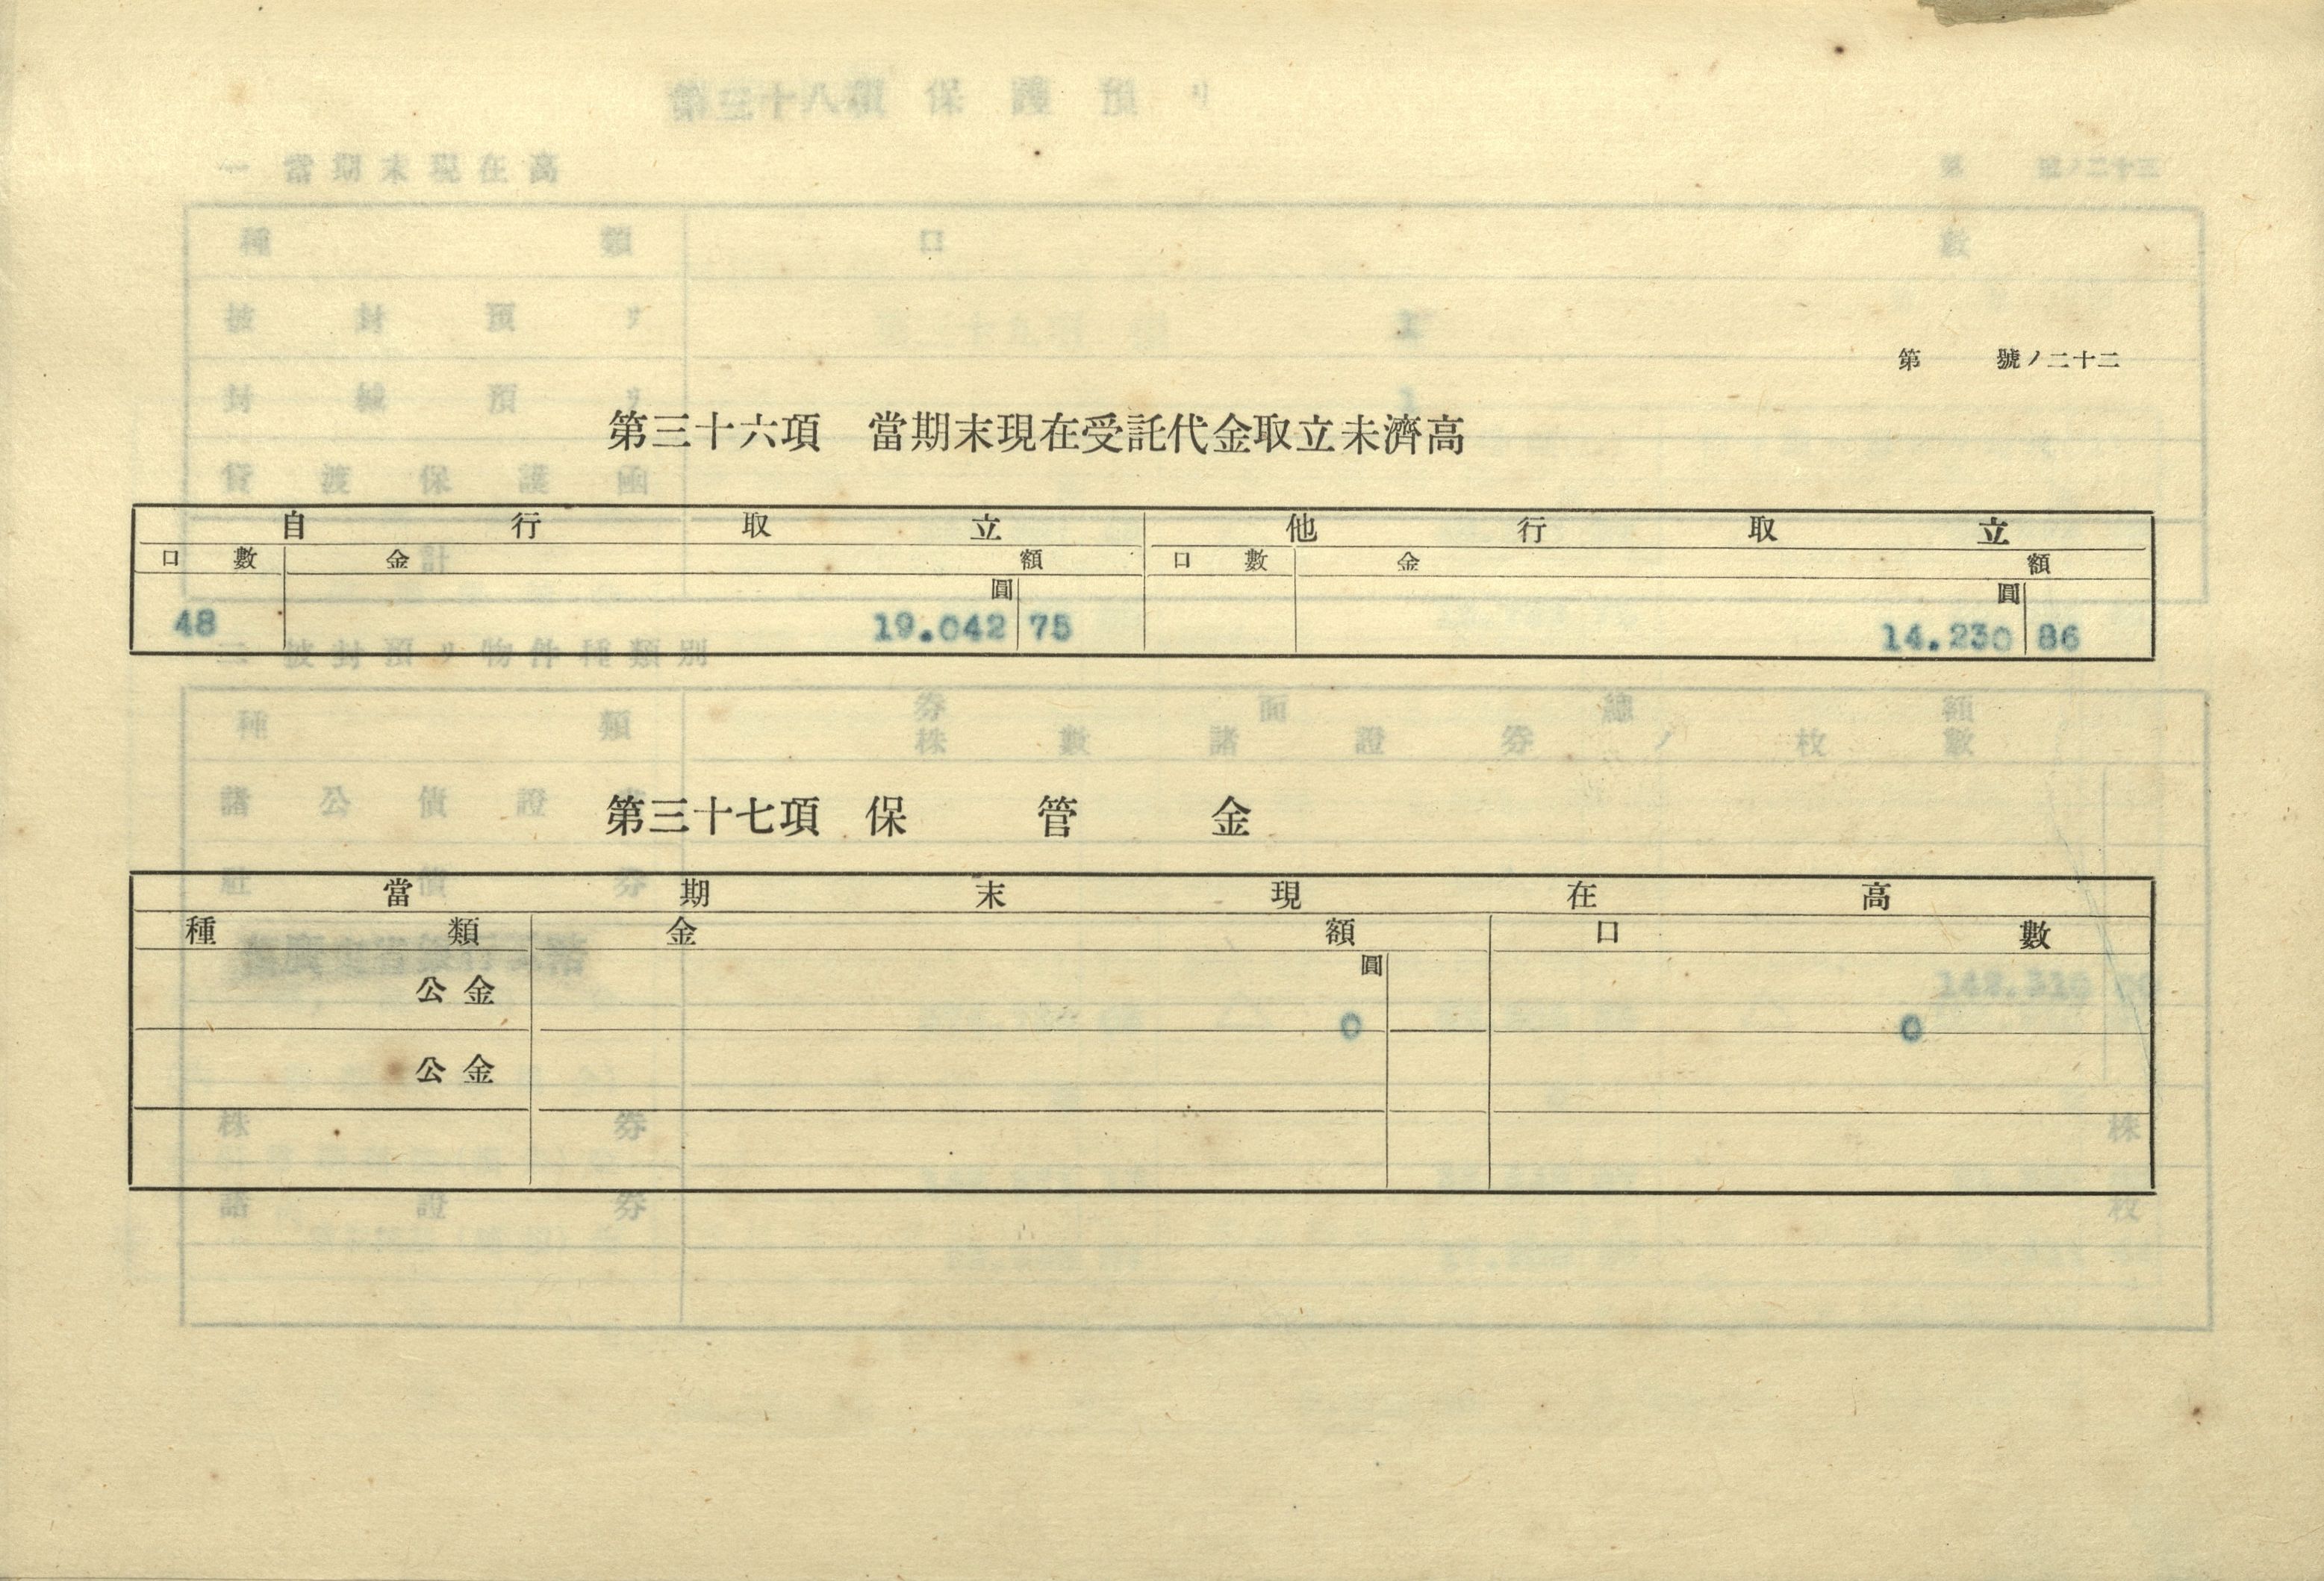 第 號ノ二十二
第三十六項 當期末現在受託代金取立未濟高
自行取立 他行取立
口數 金額 口數 金額
圓 圓
48 19.042 75 14.230 86
第三十七項 保管金
當期末現在高
種類 金額 口數
圓
公金
0 0
公金